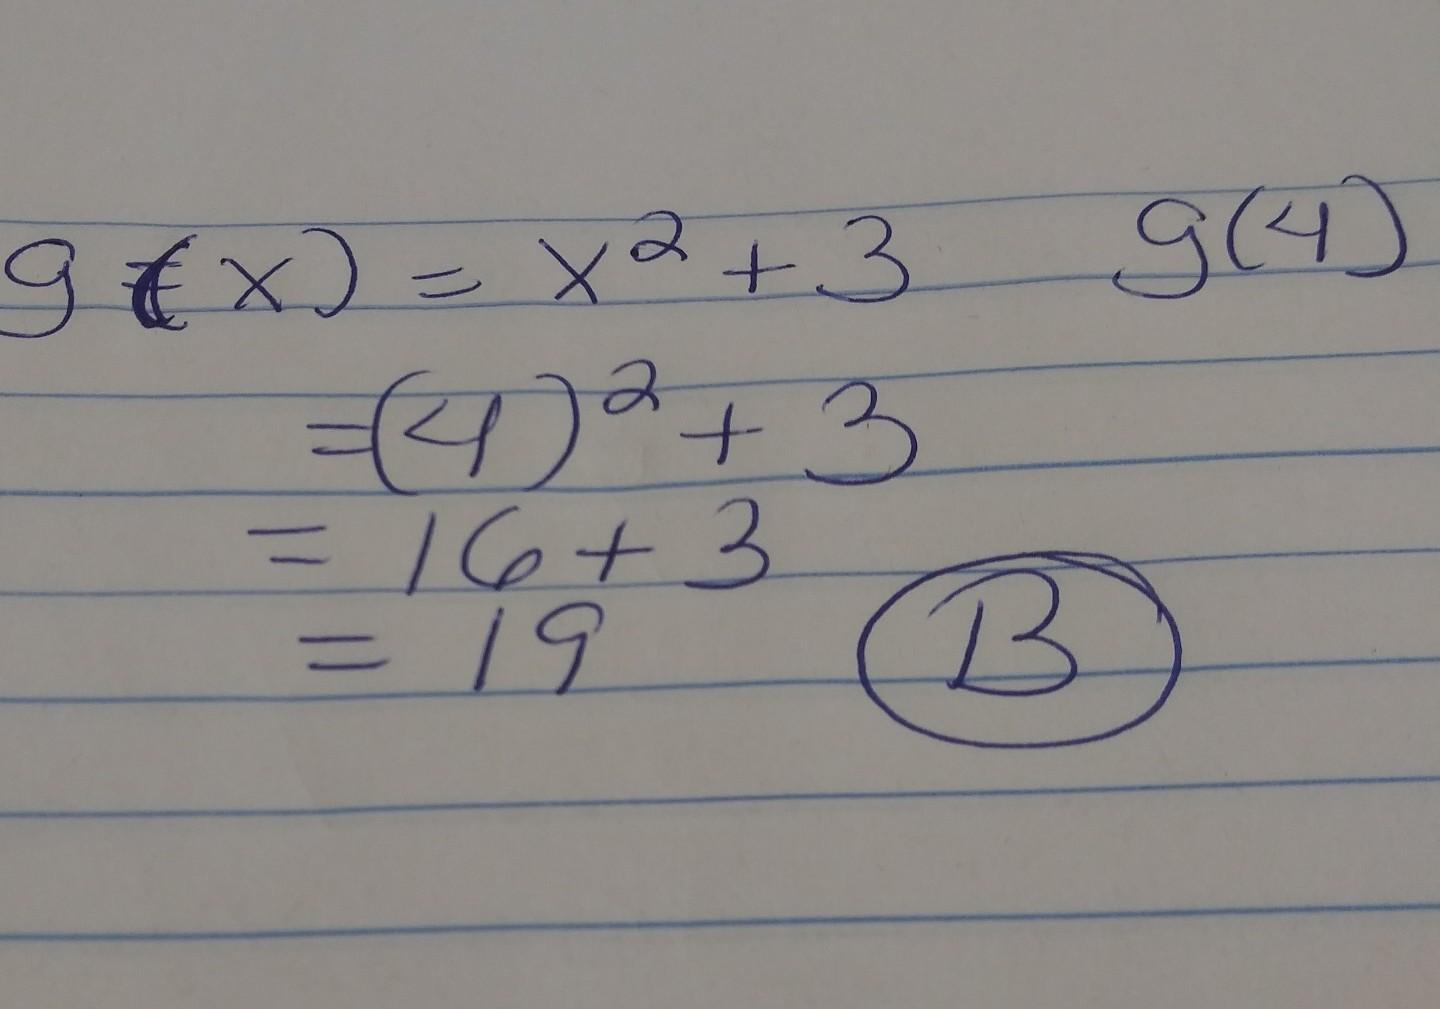 g(x) = x² + 3 g(4)
=(4)² + 3
= 16 + 3
= 19
B